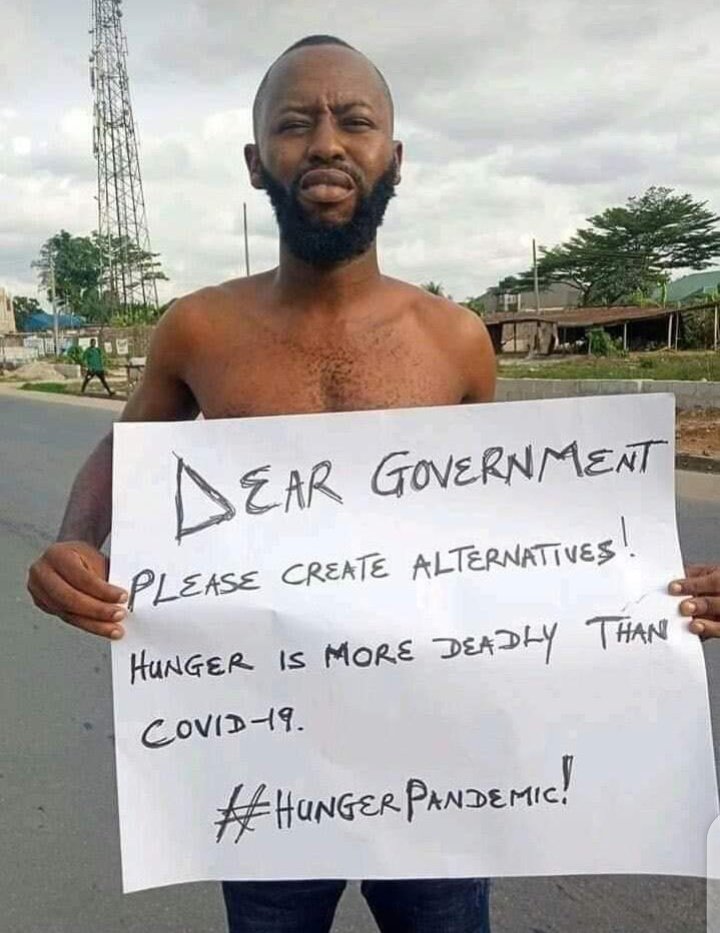 DEAR GOVERNMENT
PLEASE CREATE ALTERNATIVES!
HUNGER IS MORE DEADLY THAN
COVID-19.
#HUNGERPANDEMIC!